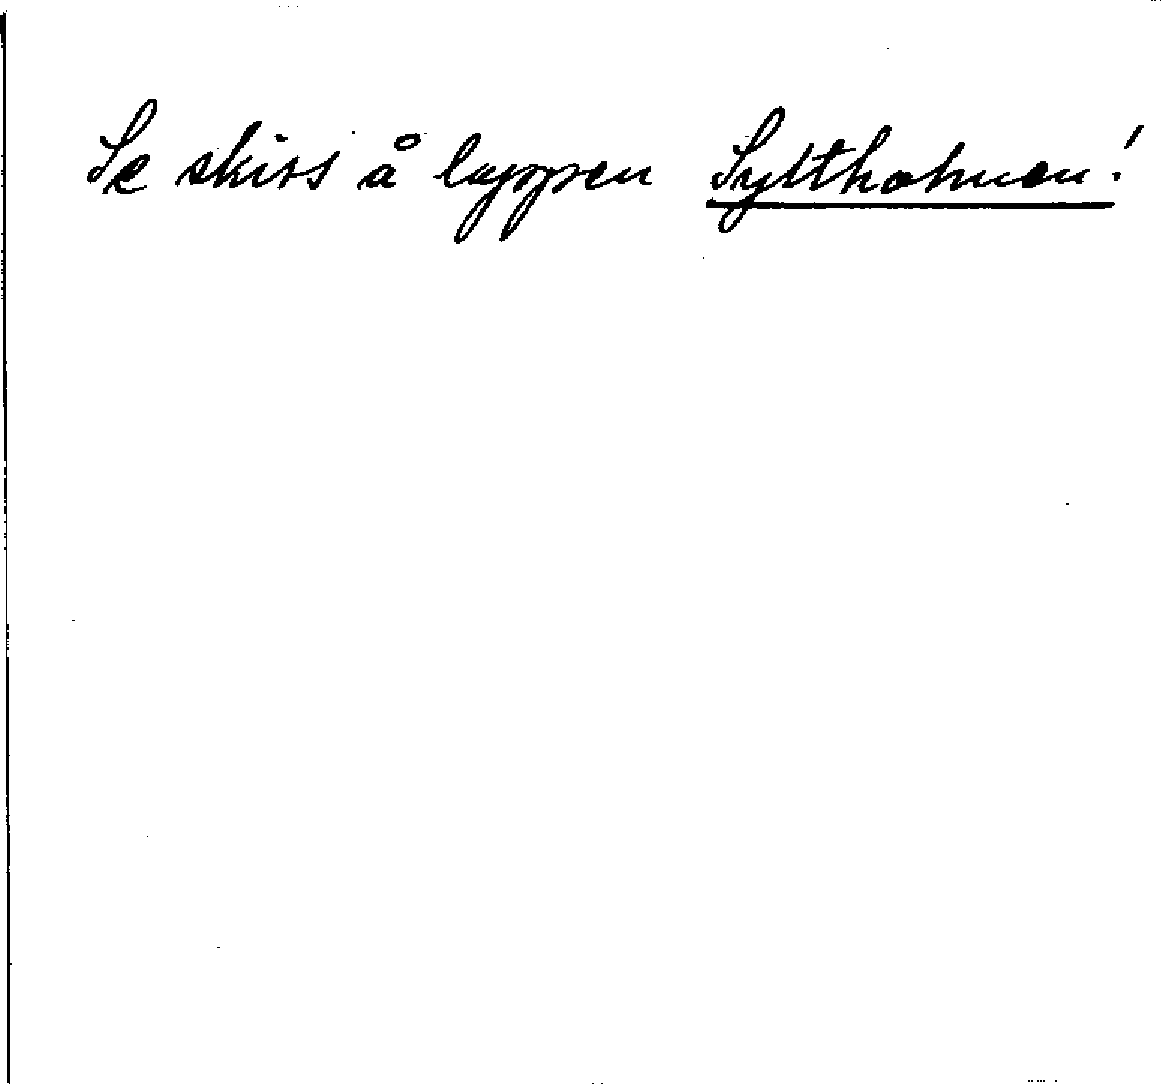 Se skiss å lappen Syltholmen!